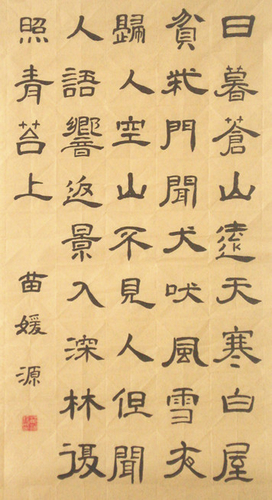 日暮蒼山遠天寒白屋
貧柴門聞犬吠風雪夜
歸人空山不見人但聞
人語響返景入深林復
照青苔上
苗媛源